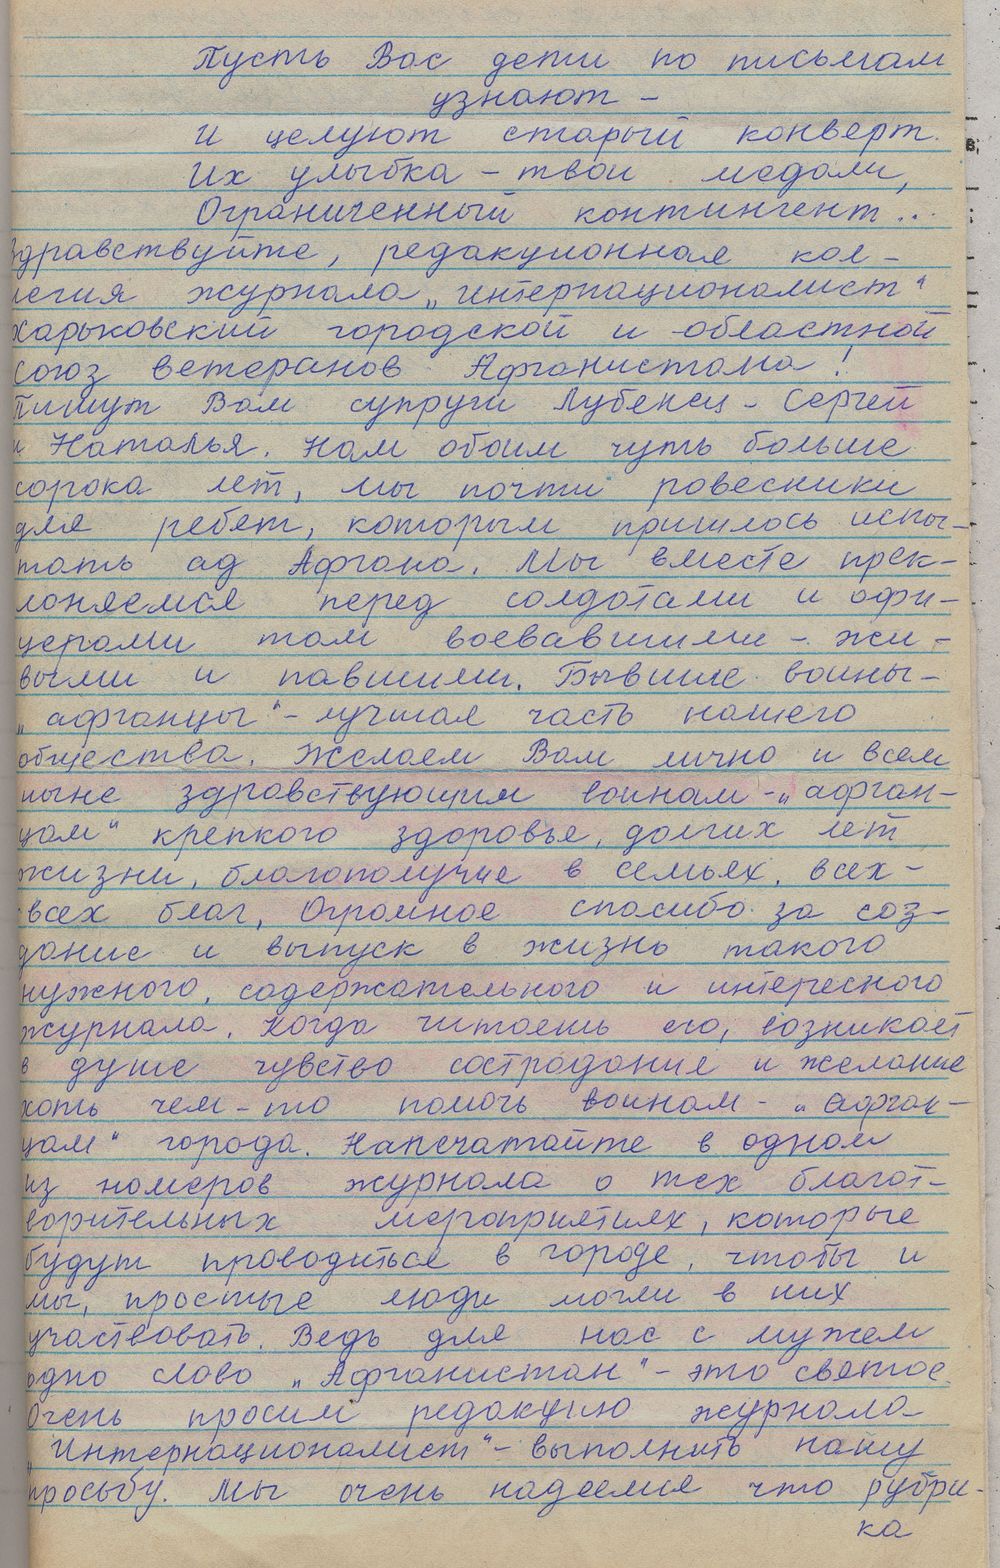 Пусть Вас дети по письмам
узнают -
И целуют старый конверт.
Их улыбка - твои медали,
Ограниченный контингент...
Здравствуйте, редакционная кол-
легия журнала „Интернационалист"
Харьковский городской и областной
союз ветеранов Афганистана!
Пишут Вам супруги Лубенец - Сергей
и Наталья. Нам обоим чуть больше
сорока лет, мы почти ровесники
для ребят, которым пришлось испы-
тать ад Афгана. Мы вместе прек-
лоняемся перед солдатами и офи-
церами там воевавшими - жи-
выми и павшими. Бывшие воины-
„афганцы" - лучшая часть нашего
общества. Желаем Вам лично и всем
ныне здравствующим воинам - „афган-
цам" крепкого здоровья, долгих лет
жизни, благополучие в семьях, всех-
всех благ. Огромное спасибо за соз-
дание и выпуск в жизнь такого
нужного, содержательного и интересного
журнала. Когда читаешь его, возникает
в душе чувство сострадания и желание
хоть чем-то помочь воинам - „афган-
цам" города. Напечатайте в одном
из номеров журнала о тех благот-
ворительных мероприятиях, которые
будут проводиться в городе, чтобы и
мы, простые люди могли в них
участвовать. Ведь для нас с мужем
одно слово „Афганистан" - это святое.
Очень просим редакцию журнала
„Интернационалист" - выполнить нашу
просьбу. Мы очень надеемся что рубри-
ка